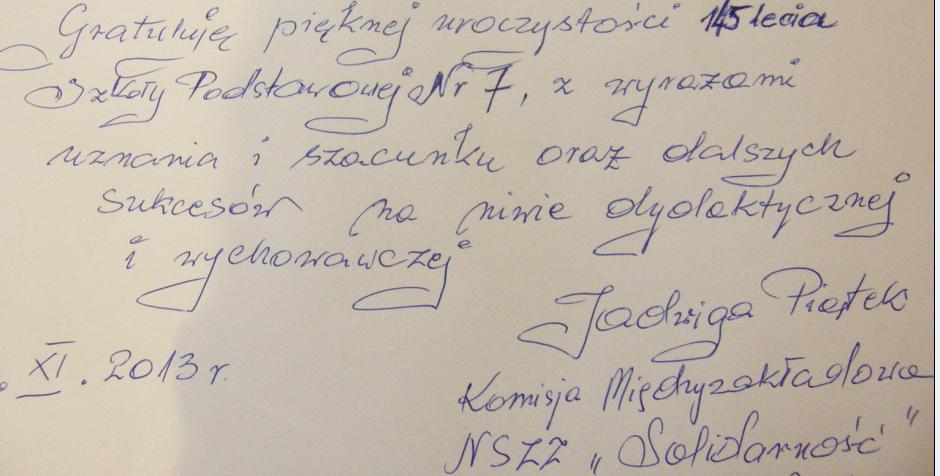 Gratuluję pięknej uroczystości 145 lecia
Szkoły Podstawowej Nr 7, z wyrazami
uznania i szacunku oraz dalszych
sukcesów na niwie dydaktycznej
i wychowawczej
Jadwiga Piątek
. XI . 2013 r.
Komisja Międzyzakładowa
NSZZ „Solidarność"